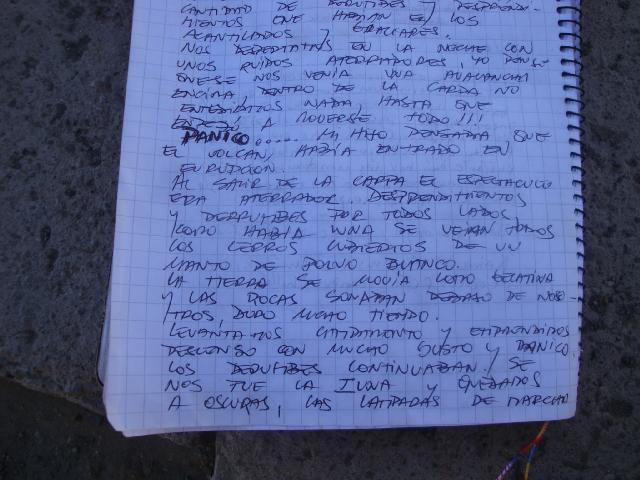 CANTIDAD DE DERRUMBES Y DESPRENDI-
MIENTOS QUE HABIAN EN LOS
ACANTILADOS Y GLACIARES.
NOS DESPERTAMOS EN LA NOCHE CON
UNOS RUIDOS ATERRADORES, YO PENSE
QUE SE NOS VENIA UNA AVALANCHA
ENCIMA, DENTRO DE LA CARPA NO
ENTENDIAMOS NADA, HASTA QUE
EMPEZO A MOVERSE TODO!!!
PANICO..... MI HIJO PENSABA QUE
EL VOLCAN, HABIA ENTRADO EN
ERUPCION.
AL SALIR DE LA CARPA EL ESPECTACULO
ERA ATERRADOR. DESPRENDIMIENTOS
Y DERRUMBES POR TODOS LADOS,
COMO HABIA LUNA SE VEIAN TODOS
LOS CERROS CUBIERTOS DE UN
MANTO DE POLVO BLANCO.
LA TIERRA SE MOVIA COMO GELATINA
Y LAS ROCAS SONABAN DEBAJO DE NOSO-
TROS, DURO MUCHO TIEMPO.
LEVANTAMOS CAMPAMENTO Y EMPRENDIMOS
DESCENSO CON MUCHO SUSTO Y PANICO.
LOS DERRUMBES CONTINUABAN. SE
NOS FUE LA LUNA Y QUEDAMOS
A OSCURAS, LAS LAMPARAS DE MARCHA